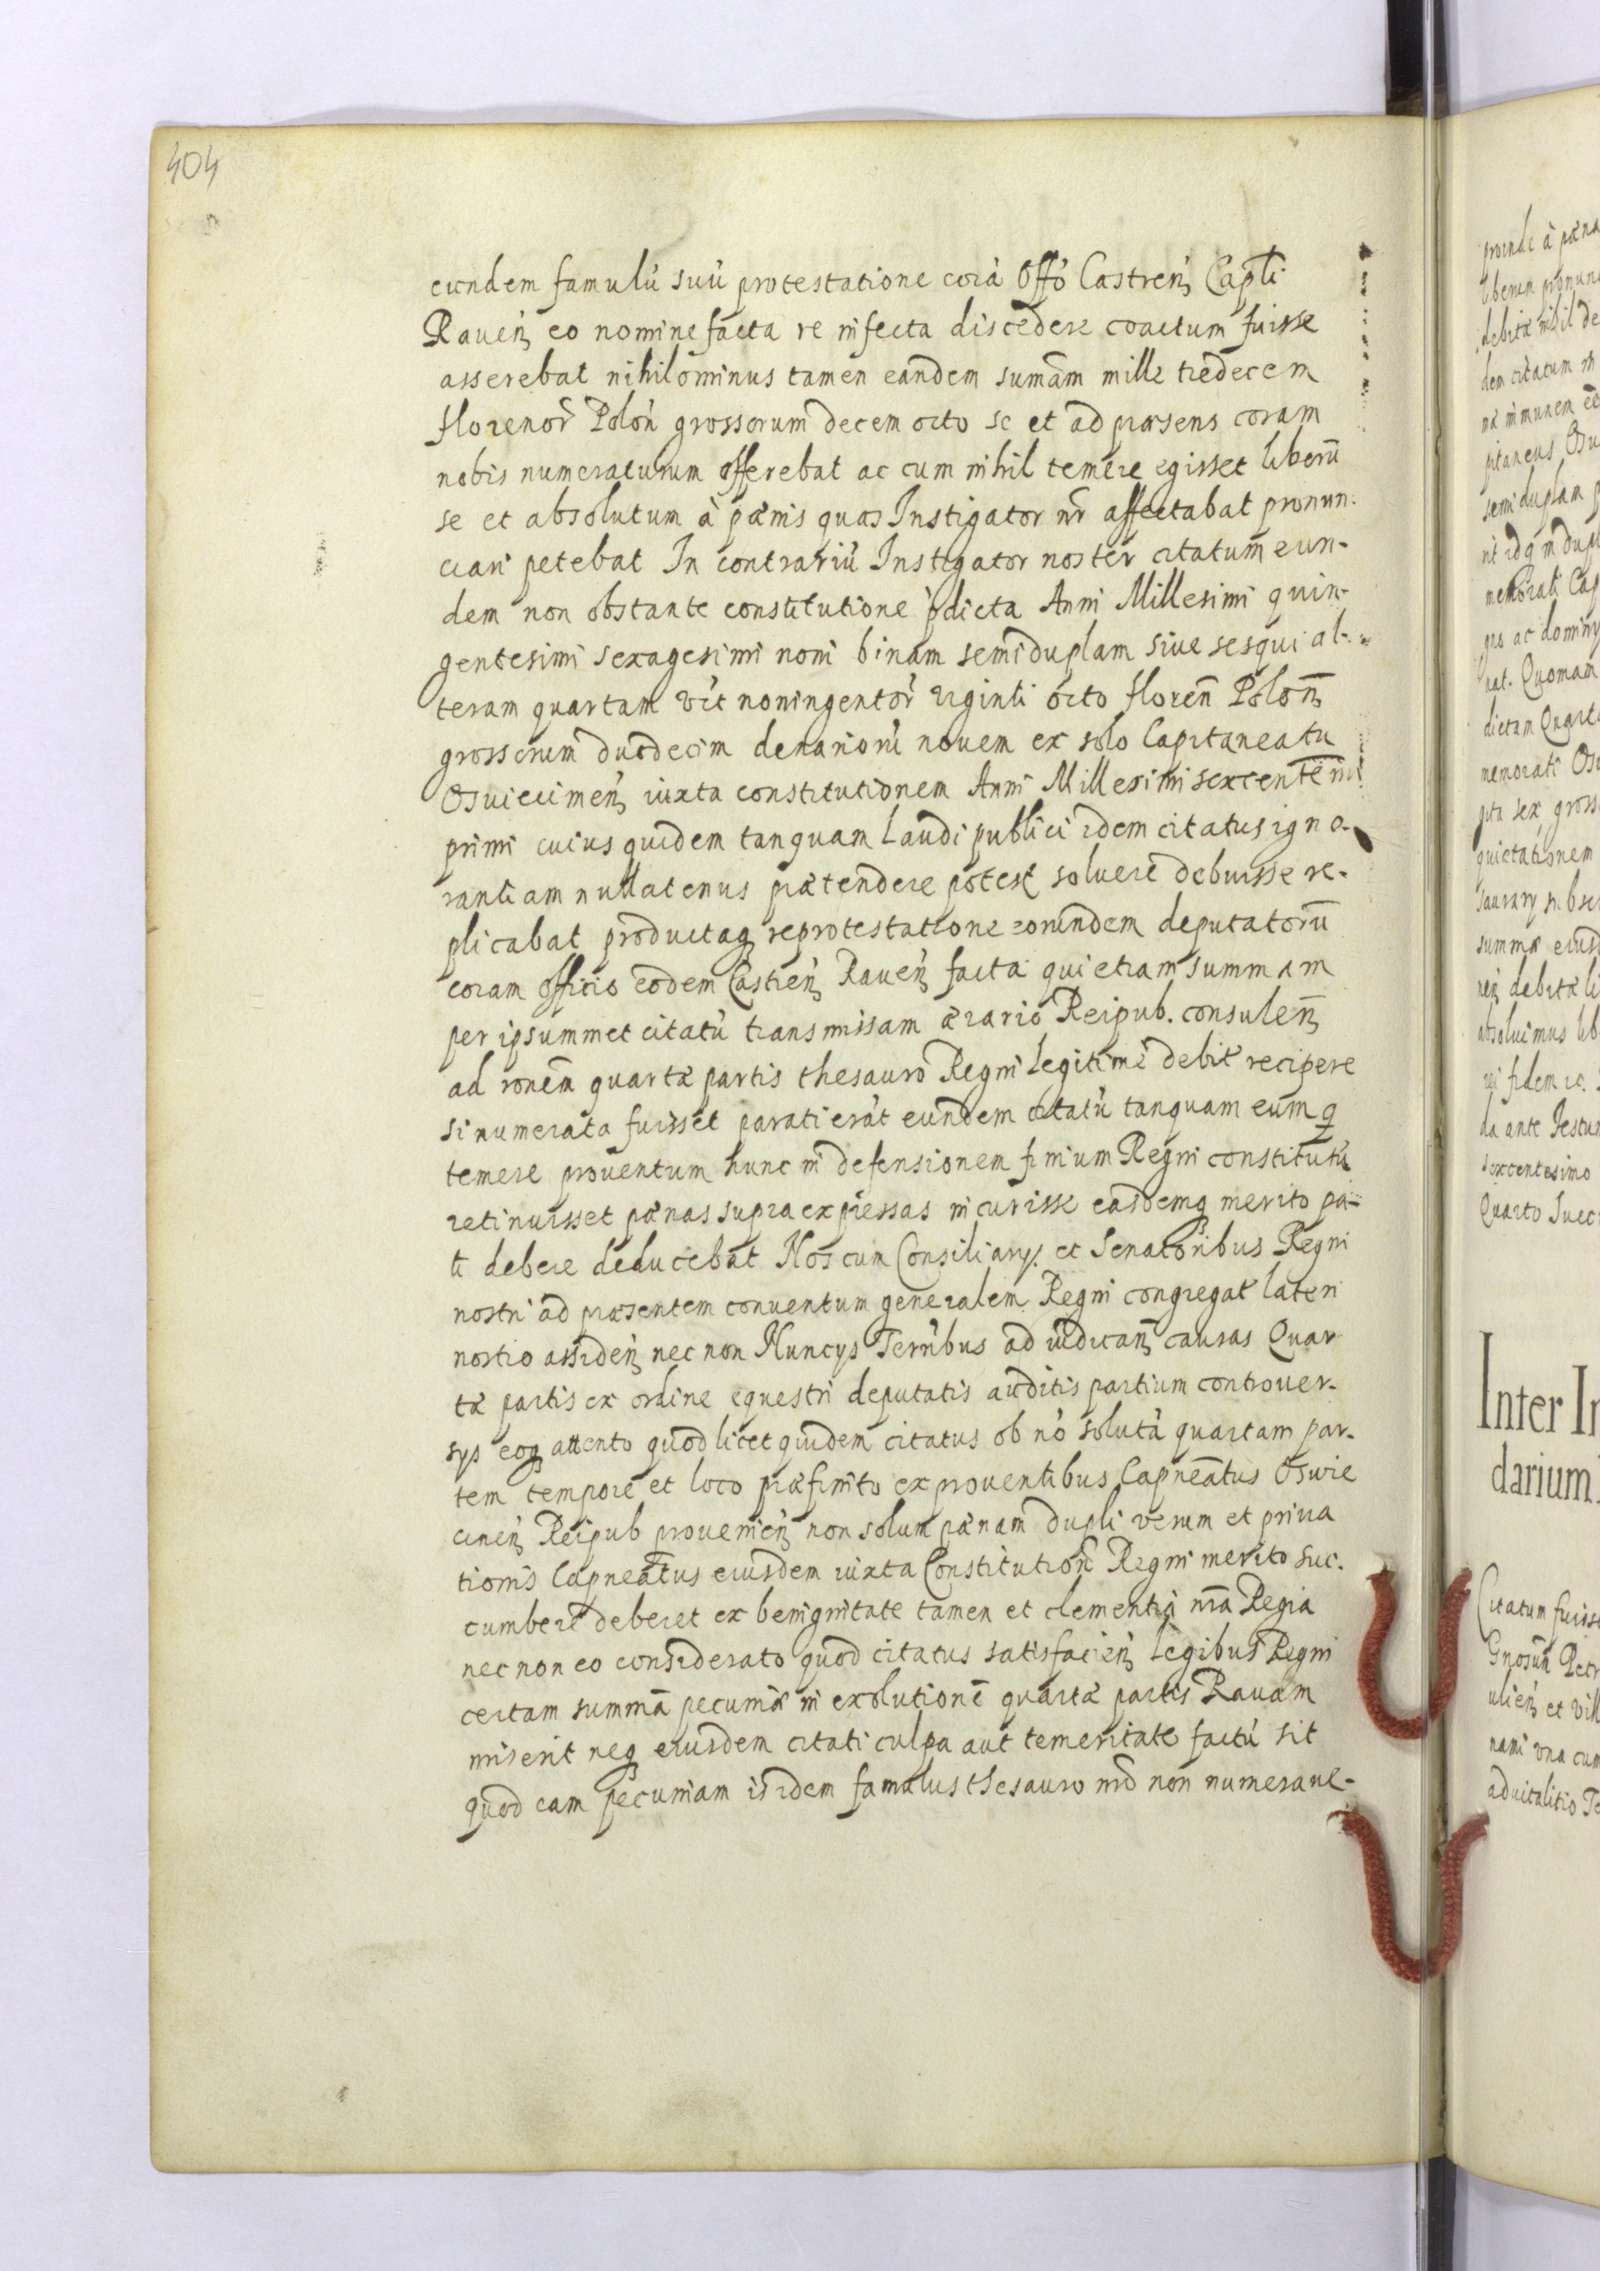 404
eundem famulũ suũ protestatione corã Offõ Castreñ Capłi
Raueñ eo nomine facta re infecta discedere coactum fuisse
asserebat nihilominus tamen eandem sumãm mille tredecem
florenor̃ Polõn grossorum decem octo se et ad præsens coram
nobis numeraturum offerebat ac cum nihil temere egisset liberũ
se et absolutum à pænis quas Instigator nr̃ affectabat pronun-
ciari petebat In contrariũ Instigator noster citatum eun-
dem non obstante constitutione p̃dicta Anni Millesimi quin-
gentesimi sexagesimi noni binam semiduplam siue sesqui al-
teram quartam vi͠t noningentor̃ viginti octo floreñ Poloñ
grossorum duodecim denariorũ nouem ex solo Capitaneatu
Osuiecimeñ iuxta constitutionem Anni Millesimi sexcentẽmi
primi cuius quidem tanquam Laudi publici idem citatus igno-
rantiam nullatenus prætendere potest soluere debuisse re-
plicabat productaq reprotestatione eorundem deputatorũ
coram officio eodem Castreñ Raueñ facta qui etiam summam
per ipsummet citatũ transmissam ærario Reipub. consuleñ
ad ronẽm quartæ partis thesauro Regni legitimè debitè recipere
si numerata fuisset parati erãt eundem citatũ tanquam eum q
temere prouentum hunc in defensionem finium Regni constitutũ
retinuisset pænas supra expressas incurisse easdemq merito pa-
ti debere deducebat Nos cum Consiliarys et Senatoribus Regni
nostri ad præsentem conuentum generalem Regni congregat lateri
nostro assideñ nec non Nuncys Terr̃ibus ad iudicañ causas Quar
tæ partis ex ordine equestri deputatis auditis partium controuer-
sys eoq attento quod licet quidem citatus ob nõ solutã quartam par-
tem tempore et loco præfinito ex prouentibus Capneãtus Oswie
cineñ Reipub prouenieñ non solum pænam dupli verum et priua
tionis Capneãtus eiusdem iuxta Constitutioñ Regni merito suc-
cumbere deberet ex benignitate tamen et clementia nr̃a Regia
nec non eo considerato quod citatus satisfacieñ Legibus Regni
certam summã pecuniæ in exolutionẽ quartæ partis Rauam
miserit neq eiusdem citati culpa aut temeritate factũ sit
quod eam pecuniam is idem famulus thesauro nr̃o non numeraue-
proinde à pæna
liberum pronun
debitæ nihil de
dem citatum in
na immunem eẽ
pitaneus Osu
semiduplam p
memorati Cap
gno ac dominy
nat. Quoniam
dictam Quarta
memorati Osu
gta sex gross
quietationem
summæ eiusd
neñ debitæ li
absoluimus lib
rei fidem &c.
da ante Festum
sexcentesimo
Quarto Suec
Inter In
darium
Citatum fuisse
Gnosũm Petr
ulieñ et vill
nami vna cum
aduitalitio Te